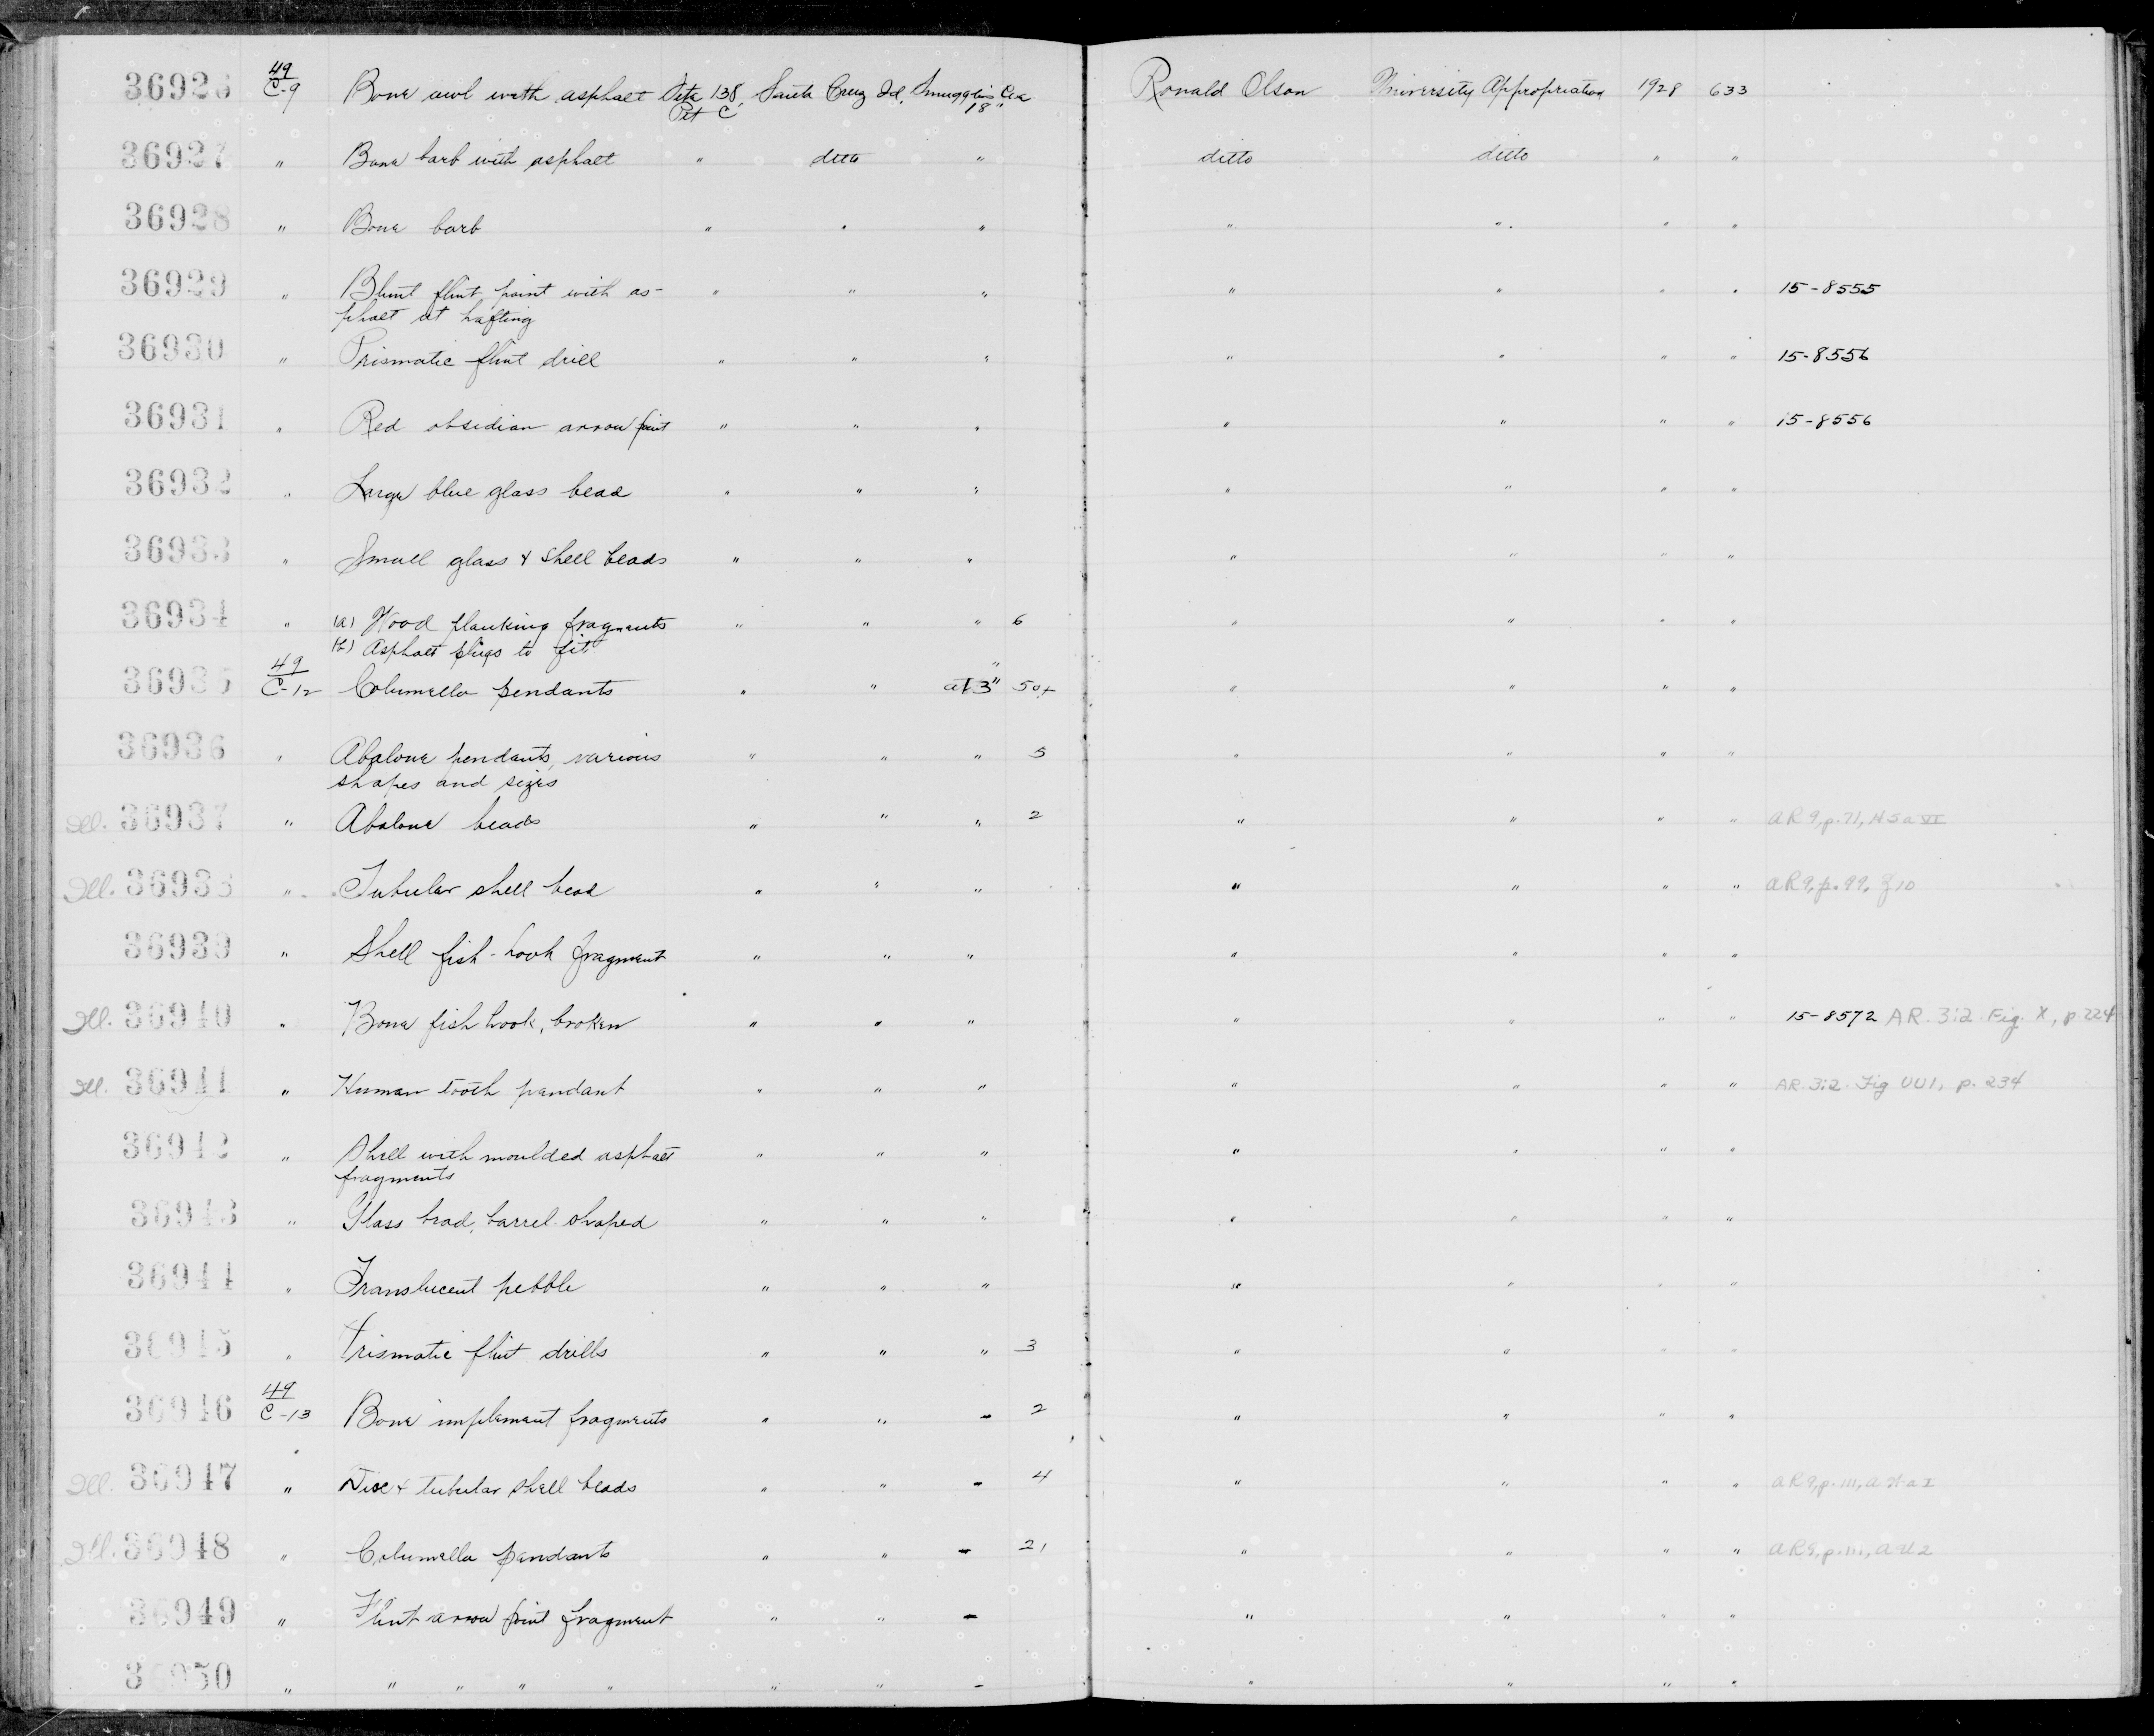 36926 49/C-9 Bone awl with asphalt Site 138, Santa Cruz Id, Smugglers Cove Ronald Olson University Appropriation 1928 633
Pit C 18"
36927 " Bone barb with asphalt " ditto " ditto ditto " "
36928 " Bone barb " " " " " " "
36929 " Blunt flint point with as- " " " " " " " 15-8555
phalt at hafting
36930 " Prismatic flint drill " " " " " " " 15-8556
36931 " Red obsidian arrow point " " " " " " " 15-8556
36932 " Large blue glass bead " " " " " " "
36933 " Small glass & shell beads " " " " " " "
36934 " (a) Wood planking fragments " " " 6 " " " "
(b) Asphalt plugs to fit "
36935 49/C-12 Columella pendants " " at 3" 50+ " " " "
36936 " Abalone pendants, various " " " 5 " " " "
shapes and sizes
Ill. 36937 " Abalone beads " " " 2 " " " " AR 9, p. 71, H5a VI
Ill. 36938 " Tubular shell bead " " " " " " " AR 9, p. 99, 10
36939 " Shell fish-hook fragment " " " " " " "
Ill. 36940 " Bone fish hook, broken " " " " " " " 15-8572 AR. 3:2 Fig. X, p. 224
Ill. 36941 " Human tooth pendant " " " " " " " AR. 3:2. Fig UU1, p. 234
36942 " Shell with moulded asphalt " " " " " " "
fragments
36943 " Glass bead, barrel shaped " " " " " " "
36944 " Translucent pebble " " " " " " "
36945 " Prismatic flint drills " " " 3 " " " "
36946 49/C-13 Bone implement fragments " " - 2 " " " "
Ill. 36947 " Disc & tubular shell beads " " - 4 " " " " AR 9, p. 111,
Ill. 36948 " Columella pendants " " - 21 " " " " AR 9, p. 111,
36949 " Flint arrow point fragment " " - " " " "
36950 " " " " " " " - " " " "